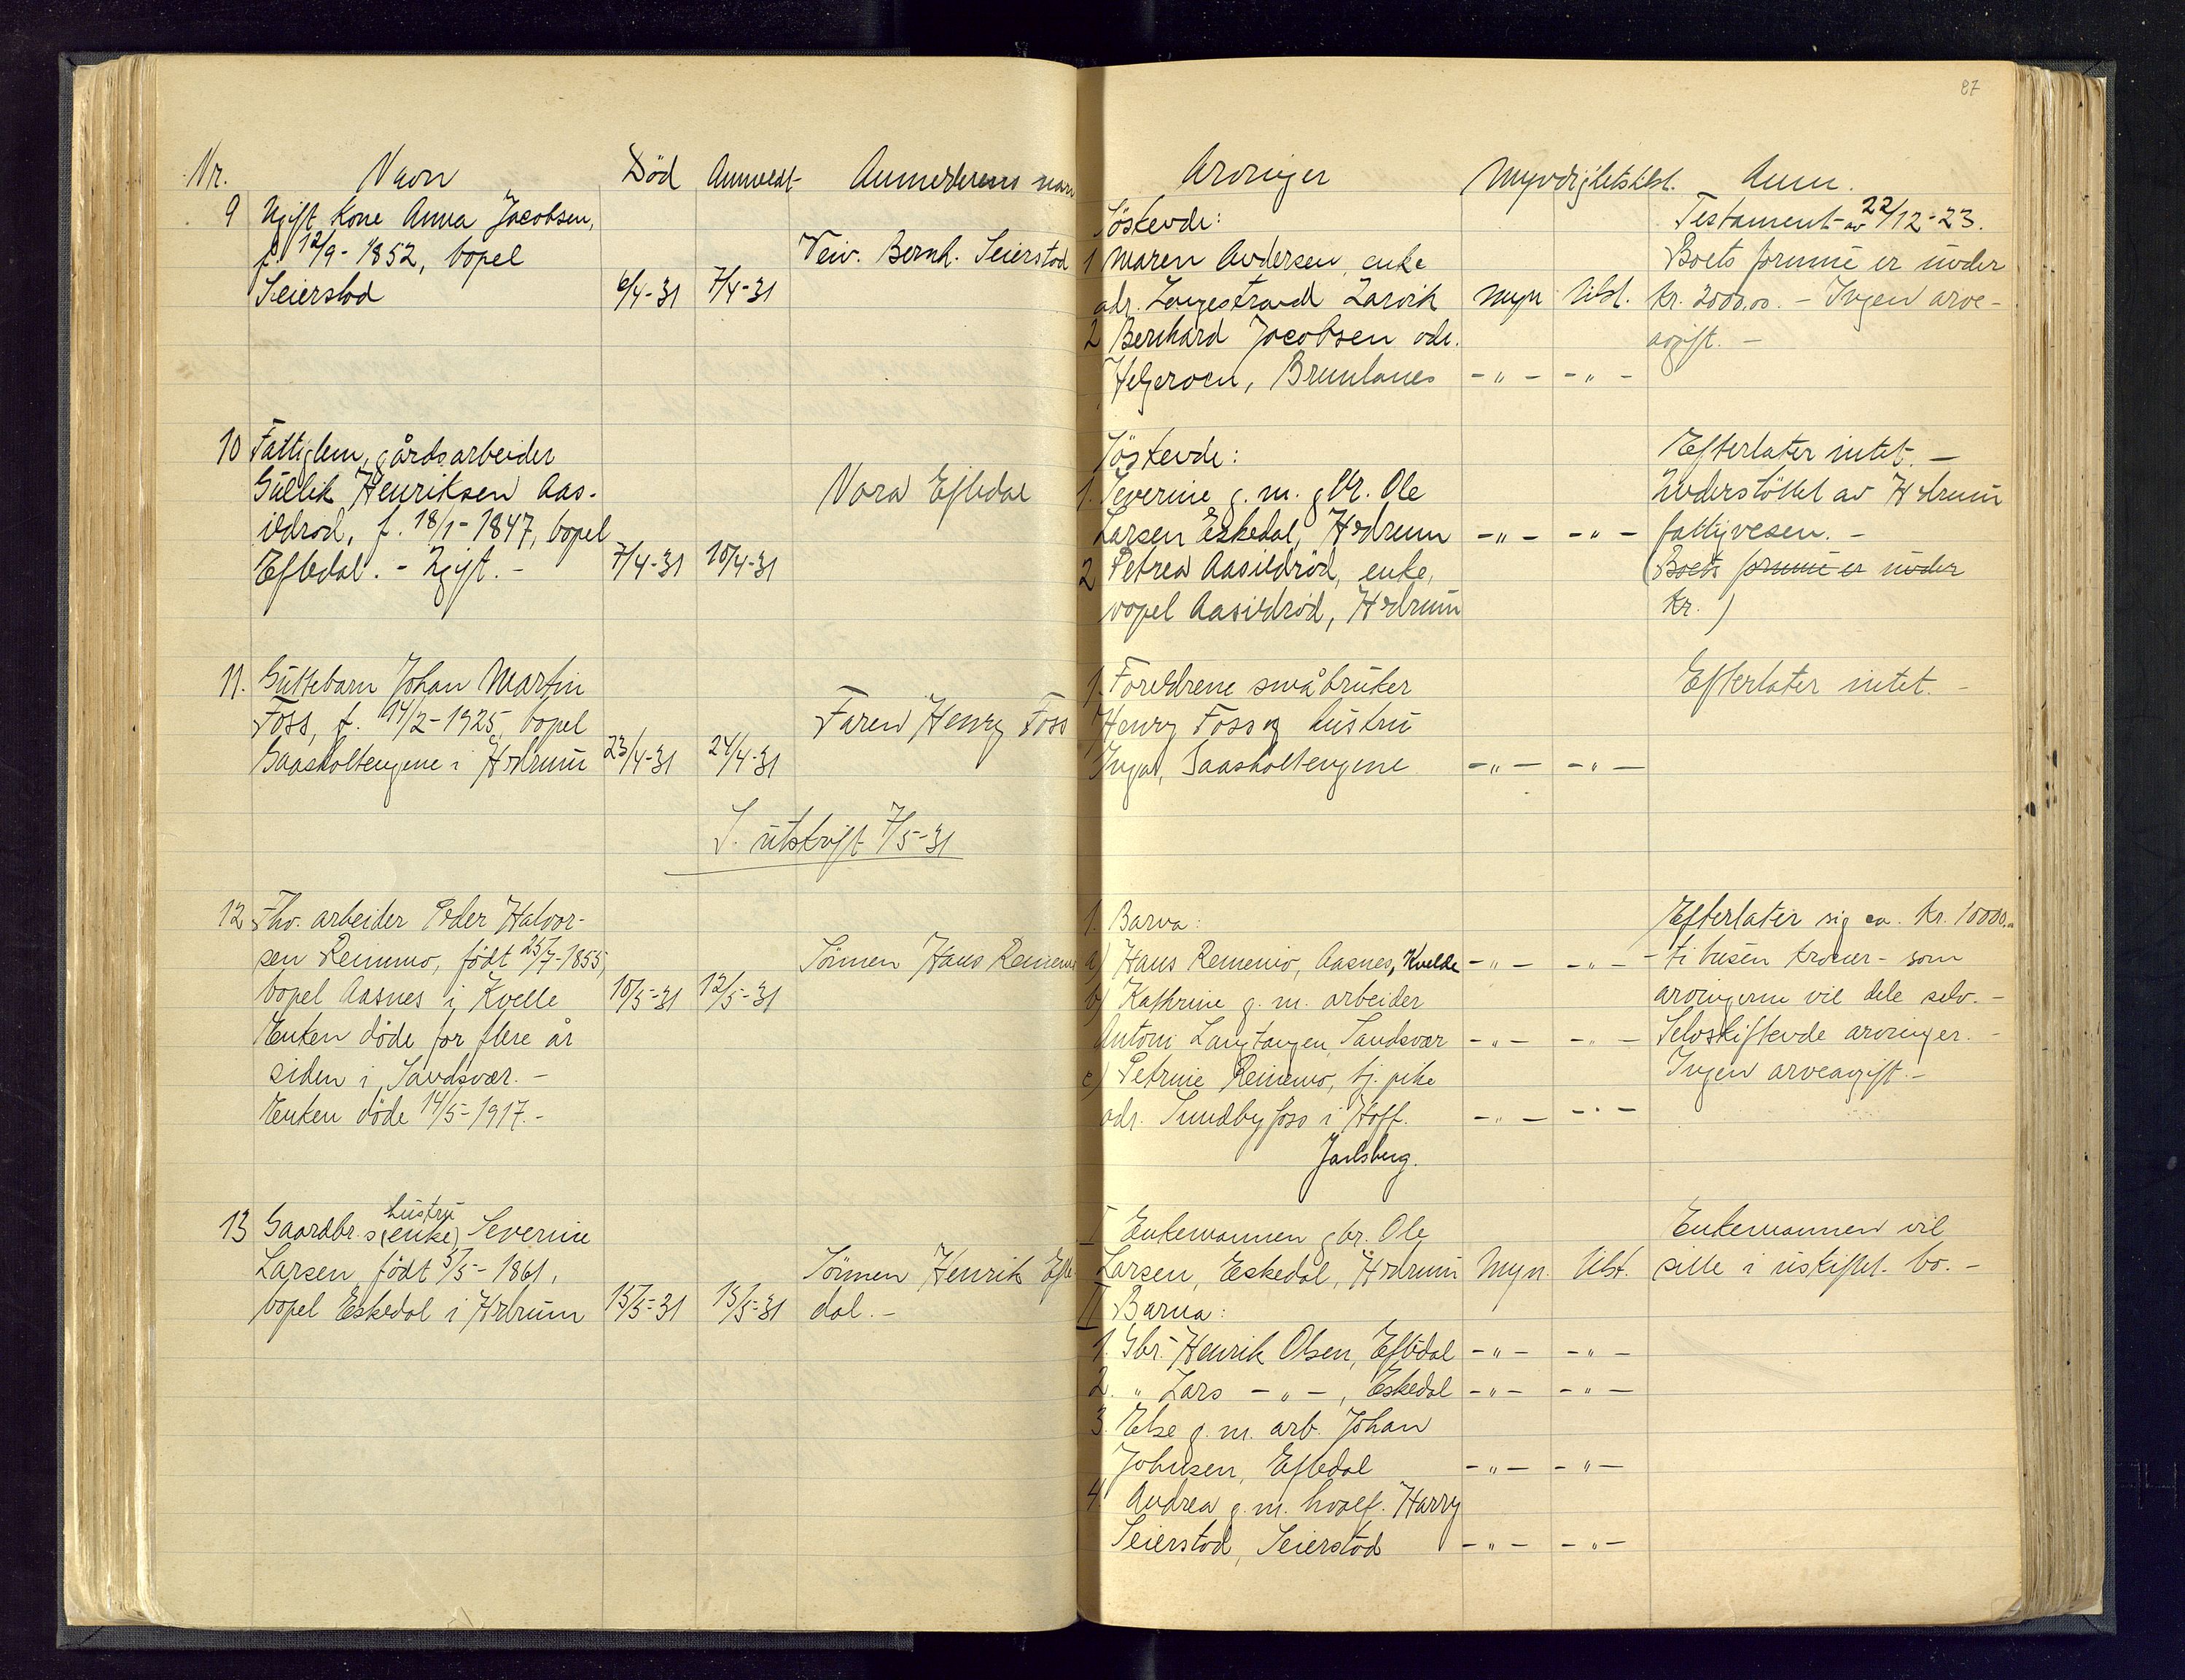 87
Nr. Navn Död Anmeldt Anmelderens navn
9 Ugift Kone Anna Jacobsen,
f. 12/9-1852, bopel
Seierstod 6/4-31 7/4-31
Veiv. Bernh. Seierstod
10 Fattiglem, gårdsarbeider
Gullik Henriksen Aas-
ildrød, f. 18/1-1847, bopel
Eftedal. - Ugift. - 7/4-31 10/4-31
Nora Eftedal
11. Guttebarn Johan Martin
Foss, f. 14/2-1925, bopel
Saasholtengene i Hedrum 23/4-31 24/4-31
Faren Henry Foss
S. utskrift 7/5-31
12 Fhv. arbeider Peder Halvor-
sen Reinemo, født 25/7-1855,
bopel Aasnes i Kvelle 10/5-31 12/5-31
Sönnen Hans Reinemo
Enken döde for flere år
siden i Sandsvær. -
Enken döde 14/5-1917. -
13 Gaardbr.s (enke) hustru Severine
Larsen, født 5/5-1861,
bopel Eskedal i Hedrum 15/5-31 15/5-31
Sönnen Henrik Efte
dal. -
Arvinger Myndighetstilst. Anm.
Söskende:
1 Maren Andersen, enke
adr. Langestrand Larvik Myn Utst.
2 Bernhard Jacobsen adr.
Helgeroen, Brunlanes - " - - " -
Testament av 22/12-23.
Boets formue er under
kr. 2000.00. - Ingen arve-
avgift. -
Söskende:
1. Severine g. m. gbr. Ole
Larsen Eskedal, Hedrum - " - - " -
2 Petrea Aasildröd, enke,
bopel Aasildröd, Hedrum
Efterlater intet. -
Understöttet av Hedrum
fattigvesen. -
(Boets formue er under
kr. )
1. Foreldrene småbruker
Henry Foss og hustru
Inga, Saasholtengene - " - - " -
Efterlater intet. -
1. Barna:
a) Hans Reinemo, Aasnes, Kvelde - " - - " -
b) Kathrine g. m. arbeider
Antoni Langtangen, Sandsvær - " - - " -
c) Petrine Reinemo, tj. pike
adr. Sundbyfoss i Hoff. - " - - " -
Jarlsberg.
Efterlater sig ca. kr. 10000.
- ti tusen kroner - som
arvingerne vil dele selv. -
Selvskiftende arvinger. -
Ingen arveavgift. -
I Enkemannen gbr. Ole
Larsen, Eskedal, Hedrum Myn. Utst.
II Barna:
1. Gbr. Henrik Olsen, Eftedal - " - - " -
2. " Lars - " -, Eskedal - " - - " -
3. Else g. m. arb. Johan
Johnsen, Eftedal - " - - " -
4 Andrea g. m. hvalf. Harry
Seierstod, Seierstod - " - - " -
Enkemannen vil
sitte i uskiftet bo. -